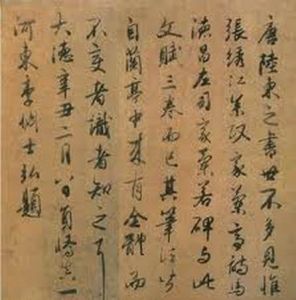 唐陸柬之書世不多見惟
張綉江參政家蘭亭詩馮
德昌左司家蘭若碑与此
文賦三卷而已其筆法皆
自蘭亭中來有全體而
不變者識者知之耳
大德辛丑二月八日員嶠真一
河東李倜士弘題